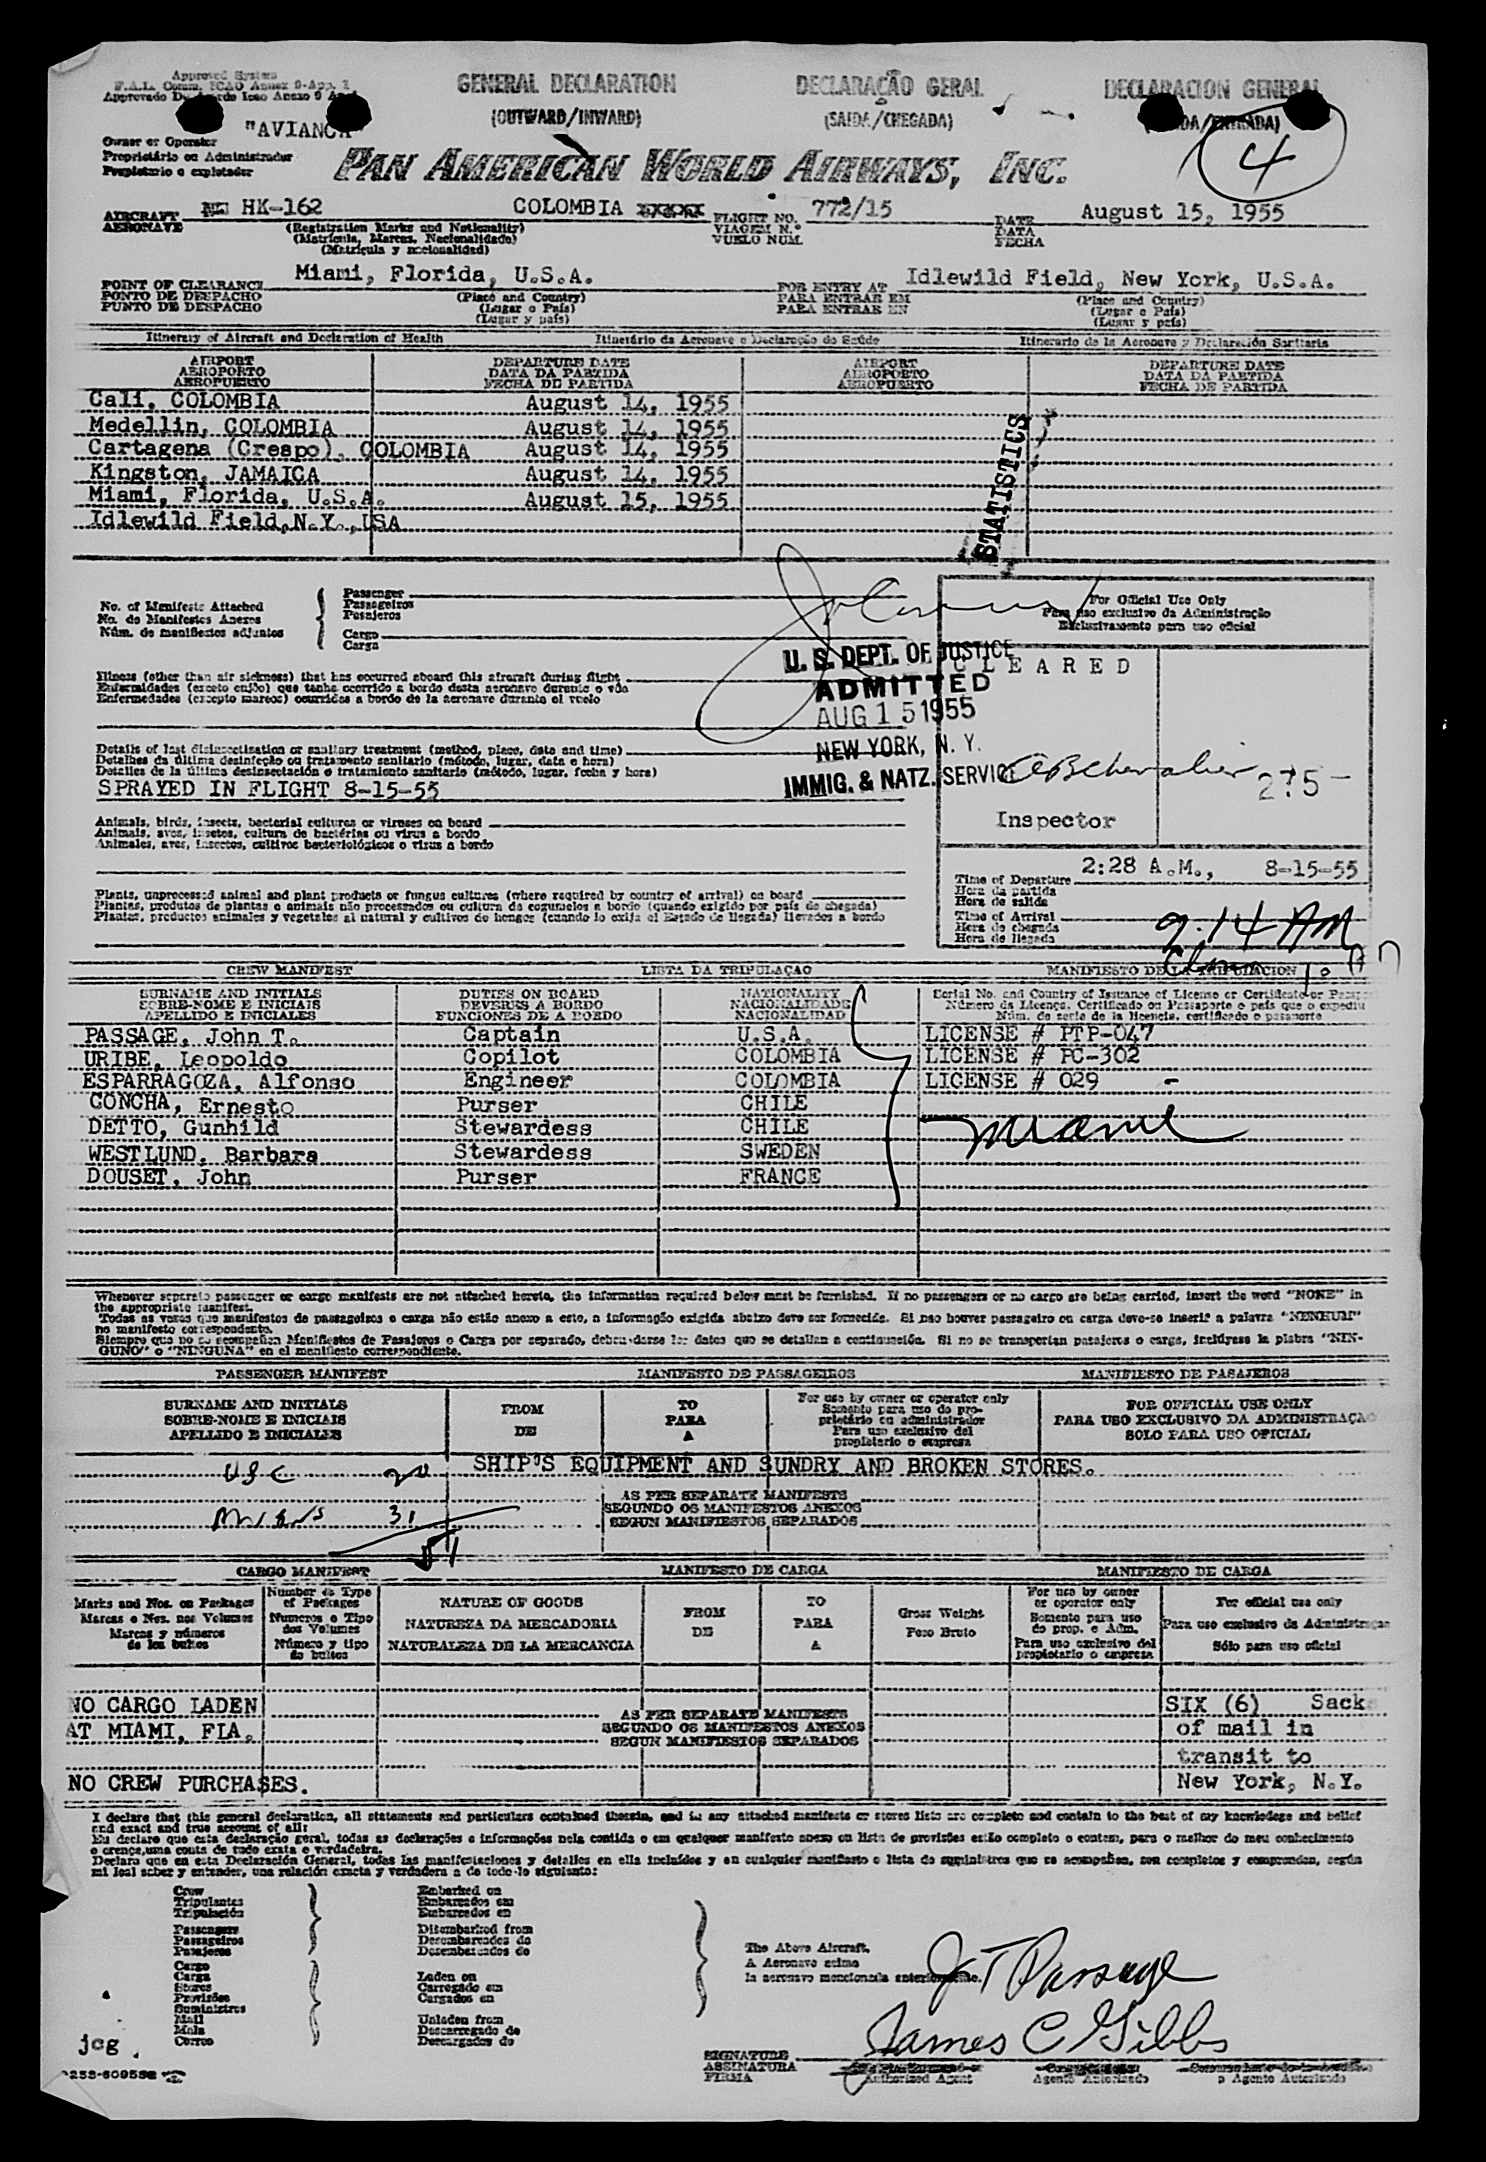 Approved System
F.A.L. Comm. ICAO Annex 9-App. 1
GENERAL DECLARATION
(OUTWARD/INWARD)
DECLARAÇÃO GERAL
(SAIDA/CHEGADA)
DECLARACION GENERAL
4
"AVIANCA"
Owner or Operator
Proprietário ou Administrador
Propietario o explotador
PAN AMERICAN WORLD AIRWAYS, INC.
AIRCRAFT HK-162 COLOMBIA FLIGHT NO. 772/15 DATE August 15, 1955
AERONAVE (Registration Marks and Nationality) VIAGEM N.º DATA
(Matrícula, Marcas, Nacionalidade) VUELO NUM. FECHA
(Matrícula y nacionalidad)
POINT OF CLEARANCE Miami, Florida, U.S.A. FOR ENTRY AT Idlewild Field, New York, U.S.A.
PONTO DE DESPACHO (Place and Country) PARA ENTRAR EM (Place and Country)
PUNTO DE DESPACHO (Lugar o País) PARA ENTRAR EN (Lugar o País)
(Lugar y país) (Lugar y país)
Itinerary of Aircraft and Declaration of Health Itinerário da Aeronave e Declaração de Saúde Itinerario de la Aeronave y Declaración Sanitaria
AIRPORT DEPARTURE DATE AIRPORT DEPARTURE DATE
AEROPORTO DATA DA PARTIDA AEROPORTO DATA DA PARTIDA
AEROPUERTO FECHA DE PARTIDA AEROPUERTO FECHA DE PARTIDA
Cali, COLOMBIA August 14, 1955
Medellin, COLOMBIA August 14, 1955
Cartagena (Crespo), COLOMBIA August 14, 1955
Kingston, JAMAICA August 14, 1955
Miami, Florida, U.S.A. August 15, 1955
Idlewild Field,N.Y.,USA
STATISTICS
No. of Manifests Attached
No. de Manifestos Anexos
Núm. de manifiestos adjuntos
Passenger
Passageiros
Pasajeros
Cargo
Carga
For Official Use Only
Para uso exclusivo da Administração
Exclusivamente para uso oficial
U. S. DEPT. OF JUSTICE
ADMITTED
AUG 15 1955
NEW YORK, N. Y.
IMMIG. & NATZ. SERVICE
CLEARED
275-
Inspector
Illness (other than air sickness) that has occurred aboard this aircraft during flight
Enfermidades (exceto enjôo) que tenha ocorrido a bordo desta aeronave durante o vôo
Enfermedades (excepto mareos) ocurridas a bordo de la aeronave durante el vuelo
Details of last disinsectisation or sanitary treatment (method, place, date and time)
Detalhes da última desinfeção ou tratamento sanitario (método, lugar, data e hora)
Detalles de la última desinsectación o tratamiento sanitario (método, lugar, fecha y hora)
SPRAYED IN FLIGHT 8-15-55
Animals, birds, insects, bacterial cultures or viruses on board
Animais, aves, insetos, cultura de bactérias ou virus a bordo
Animales, aves, insectos, cultivos bacteriológicos o virus a bordo
Plants, unprocessed animal and plant products or fungus cultures (where required by country of arrival) on board
Plantas, produtos de plantas e animais não processados ou cultura de cogumelos a bordo (quando exigido por país de chegada)
Plantas, productos animales y vegetales al natural y cultivos de hongos (cuando lo exija el Estado de llegada) llevados a bordo
2:28 A.M., 8-15-55
Time of Departure
Hora da partida
Hora de salida
Time of Arrival 9:14 AM
Hora da chegada
Hora de llegada
CREW MANIFEST LISTA DA TRIPULAÇAO MANIFIESTO DE LA TRIPULACION
SURNAME AND INITIALS DUTIES ON BOARD NATIONALITY Serial No. and Country of Issuance of License or Certificate or
SOBRE-NOME E INICIAIS DEVERES A BORDO NACIONALIDADE Número da Licença, Certificado ou Passaporte e país que o expediu
APELLIDO E INICIALES FUNCIONES DE A BORDO NACIONALIDAD Núm. de serie de la licencia, certificado o pasaporte
PASSAGE, John T. Captain U.S.A. LICENSE # PTP-047
URIBE, Leopoldo Copilot COLOMBIA LICENSE # PC-302
ESPARRAGOZA, Alfonso Engineer COLOMBIA LICENSE # 029
CONCHA, Ernesto Purser CHILE
DETTO, Gunhild Stewardess CHILE
WESTLUND, Barbara Stewardess SWEDEN
DOUSET, John Purser FRANCE
Whenever separate passenger or cargo manifests are not attached hereto, the information required below must be furnished. If no passengers or no cargo are being carried, insert the word "NONE" in
the appropriate manifest.
Todas as vezes que manifestos de passageiros e carga não estão anexo a este, a informação exigida abaixo deve ser fornecida. Si nao houver passageiro ou carga deve-se inserir a palavra "NENHUM"
no manifesto correspondente.
Siempre que no se acompañen Manifiestos de Pasajeros o Carga por separado, deben darse los datos que se detallan a continuación. Si no se transportan pasajeros o carga, inclúyase la plabra "NIN-
GUNO" o "NINGUNA" en el manifiesto correspondiente.
PASSENGER MANIFEST MANIFESTO DE PASSAGEIROS MANIFIESTO DE PASAJEROS
SURNAME AND INITIALS FROM TO For use by owner or operator only FOR OFFICIAL USE ONLY
SOBRE-NOME E INICIAIS DE PARA Somente para uso do proprietário ou administrador PARA USO EXCLUSIVO DA ADMINISTRAÇAO
APELLIDO E INICIALES A Para uso exclusivo del propietario o empresa SOLO PARA USO OFICIAL
USC 20 SHIP'S EQUIPMENT AND SUNDRY AND BROKEN STORES.
AS PER SEPARATE MANIFESTS
31 SEGUNDO OS MANIFESTOS ANEXOS
SEGUN MANIFIESTOS SEPARADOS
51
CARGO MANIFEST MANIFESTO DE CARGA MANIFIESTO DE CARGA
Marks and Nos. on Packages Number & Type of Packages NATURE OF GOODS FROM TO Gross Weight For use by owner or operator only For official use only
Marcas e Nos. nos Volumes Numeros e Tipo dos Volumes NATUREZA DA MERCADORIA DE PARA Peso Bruto Somente para uso do prop. e Adm. Para uso exclusivo da Administraçao
Marcas y números de los bultos Número y tipo de bultos NATURALEZA DE LA MERCANCIA A Para uso exclusivo del propietario o empresa Sólo para uso oficial
NO CARGO LADEN SIX (6) Sack
AT MIAMI, FLA. AS PER SEPARATE MANIFESTS of mail in
SEGUNDO OS MANIFESTOS ANEXOS
SEGUN MANIFIESTOS SEPARADOS transit to
NO CREW PURCHASES. New York, N.Y.
I declare that this general declaration, all statements and particulars contained therein, and in any attached manifests or stores lists are complete and contain to the best of my knowledge and belief
and exact and true account of all:
Eu declaro que esta declaração geral, todas as declarações e informações nela contida e em qualquer manifesto anexo ou lista de provisões estão completo e contem, para o melhor do meu conhecimento
e crença,uma conta de tudo exata e verdadeira.
Declaro que en esta Declaración General, todas las manifestaciones y detalles en ella incluídos y en cualquier manifiesto o lista de suministros que se acompañan, son completos y comprenden, según
mi leal saber y entender, una relación exacta y verdadera a de todo lo siguiente:
Crew Embarked on
Tripulantes Embarcados em
Tripulación Embarcados en
Passengers Disembarked from
Passageiros Desembarcades do
Pasajeros Desembarcados de
Cargo
Carga Laden on
Stores Carregado em
Provisões Cargados en
Suministros
Mail Unladen from
Mala Descarregado de
Correo Descargados de
The Above Aircraft.
A Aeronave acima
la aeronave mencionada anteriormente.
J T Passage
James C Gibbs
jcg
SIGNATURE
ASSINATURA
FIRMA
Authorized Agent Agente Autorizado o Agente Autorizado